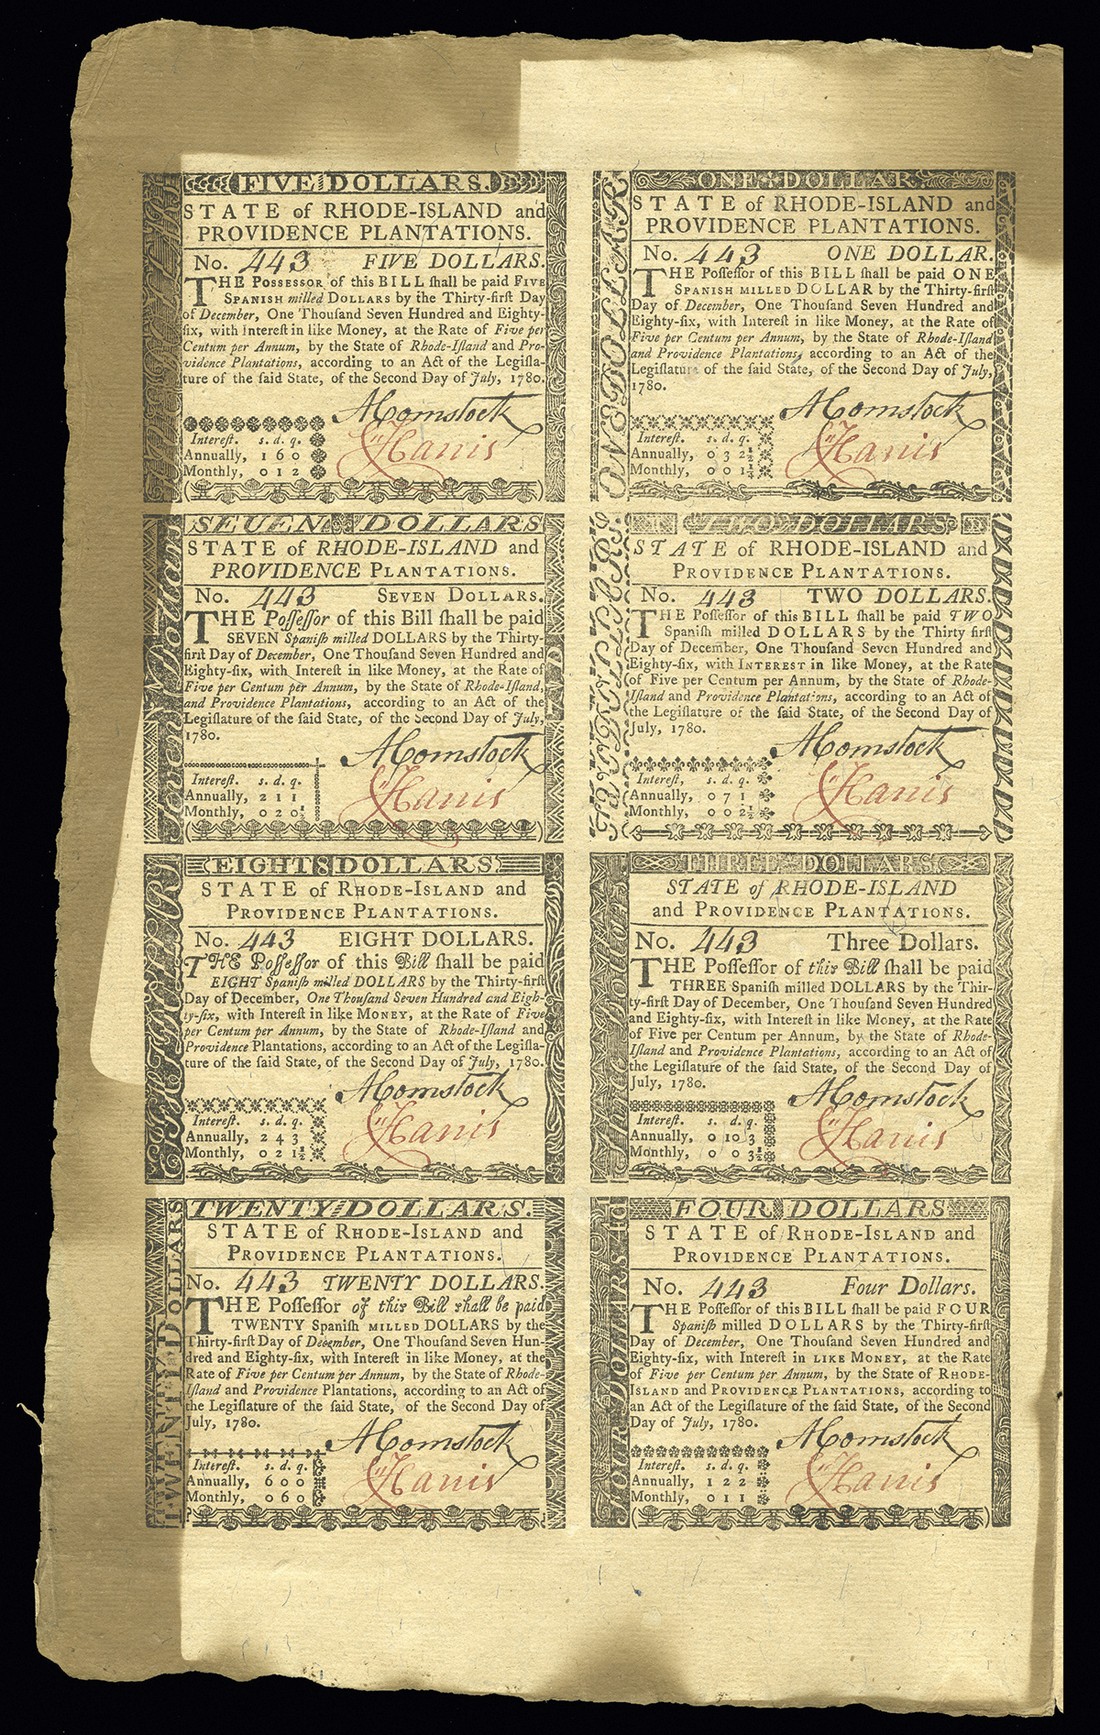 FIVE DOLLARS.
STATE of RHODE-ISLAND and
PROVIDENCE PLANTATIONS.
No. 443 FIVE DOLLARS.
THE Possessor of this BILL shall be paid FIVE
SPANISH milled DOLLARS by the Thirty-first Day
of December, One Thousand Seven Hundred and Eighty-
six, with Interest in like Money, at the Rate of Five per
Centum per Annum, by the State of Rhode-Island and Pro-
vidence Plantations, according to an Act of the Legisla-
ture of the said State, of the Second Day of July, 1780.
A Comstock
Harris
Interest. s. d. q.
Annually, 1 6 0
Monthly, 0 1 2
ONE DOLLAR.
ONE DOLLAR
STATE of RHODE-ISLAND and
PROVIDENCE PLANTATIONS.
No. 443 ONE DOLLAR.
THE Possessor of this BILL shall be paid ONE
SPANISH MILLED DOLLAR by the Thirty-first
Day of December, One Thousand Seven Hundred and
Eighty-six, with Interest in like Money, at the Rate of
Five per Centum per Annum, by the State of Rhode-Island
and Providence Plantations, according to an Act of the
Legislature of the said State, of the Second Day of July,
1780.
A Comstock
Harris
Interest. s. d. q.
Annually, 0 3 2½
Monthly, 0 0 1¼
SEVEN DOLLARS
Seven Dollars
STATE of RHODE-ISLAND and
PROVIDENCE PLANTATIONS.
No. 443 SEVEN DOLLARS.
THE Possessor of this Bill shall be paid
SEVEN Spanish milled DOLLARS by the Thirty-
first Day of December, One Thousand Seven Hundred and
Eighty-six, with Interest in like Money, at the Rate of
Five per Centum per Annum, by the State of Rhode-Island,
and Providence Plantations, according to an Act of the
Legislature of the said State, of the Second Day of July,
1780.
A Comstock
Harris
Interest. s. d. q.
Annually, 2 1 1
Monthly, 0 2 0½
TWO DOLLARS
STATE of RHODE-ISLAND and
PROVIDENCE PLANTATIONS.
No. 443 TWO DOLLARS.
THE Possessor of this BILL shall be paid TWO
Spanish milled DOLLARS by the Thirty first
Day of December, One Thousand Seven Hundred and
Eighty-six, with INTEREST in like Money, at the Rate
of Five per Centum per Annum, by the State of Rhode-
Island and Providence Plantations, according to an Act of
the Legislature of the said State, of the Second Day of
July, 1780.
A Comstock
Harris
Interest. s. d. q.
Annually, 0 7 1
Monthly, 0 0 2½
EIGHT 8 DOLLARS
STATE of RHODE-ISLAND and
PROVIDENCE PLANTATIONS.
No. 443 EIGHT DOLLARS.
THE Possessor of this Bill shall be paid
EIGHT Spanish milled DOLLARS by the Thirty-first
Day of December, One Thousand Seven Hundred and Eigh-
ty-six, with Interest in like MONEY, at the Rate of Five
per Centum per Annum, by the State of Rhode-Island and
Providence Plantations, according to an Act of the Legisla-
ture of the said State, of the Second Day of July, 1780.
A Comstock
Harris
Interest. s. d. q.
Annually, 2 4 3
Monthly, 0 2 1½
THREE DOLLARS
STATE of RHODE-ISLAND
and PROVIDENCE PLANTATIONS.
No. 443 Three Dollars.
THE Possessor of this Bill shall be paid
THREE Spanish milled DOLLARS by the Thir-
ty-first Day of December, One Thousand Seven Hundred
and Eighty-six, with Interest in like Money, at the Rate
of Five per Centum per Annum, by the State of Rhode-
Island and Providence Plantations, according to an Act of
the Legislature of the said State, of the Second Day of
July, 1780.
A Comstock
Harris
Interest. s. d. q.
Annually, 0 10 3
Monthly, 0 0 3½
TWENTY DOLLARS.
TWENTY DOLLARS
STATE of RHODE-ISLAND and
PROVIDENCE PLANTATIONS.
No. 443 TWENTY DOLLARS.
THE Possessor of this Bill shall be paid
TWENTY Spanish MILLED DOLLARS by the
Thirty-first Day of December, One Thousand Seven Hun-
dred and Eighty-six, with Interest in like Money, at the
Rate of Five per Centum per Annum, by the State of Rhode-
Island and Providence Plantations, according to an Act of
the Legislature of the said State, of the Second Day of
July, 1780.
A Comstock
Harris
Interest. s. d. q.
Annually, 6 0 0
Monthly, 0 6 0
FOUR DOLLARS
FOUR DOLLARS
STATE of RHODE-ISLAND and
PROVIDENCE PLANTATIONS.
No. 443 Four Dollars.
THE Possessor of this BILL shall be paid FOUR
Spanish milled DOLLARS by the Thirty-first Day
of December, One Thousand Seven Hundred and
Eighty-six, with Interest in LIKE MONEY, at the Rate
of Five per Centum per Annum, by the State of RHODE-
ISLAND and PROVIDENCE PLANTATIONS, according to
an Act of the Legislature of the said State, of the Second
Day of July, 1780.
A Comstock
Harris
Interest. s. d. q.
Annually, 1 2 2
Monthly, 0 1 1